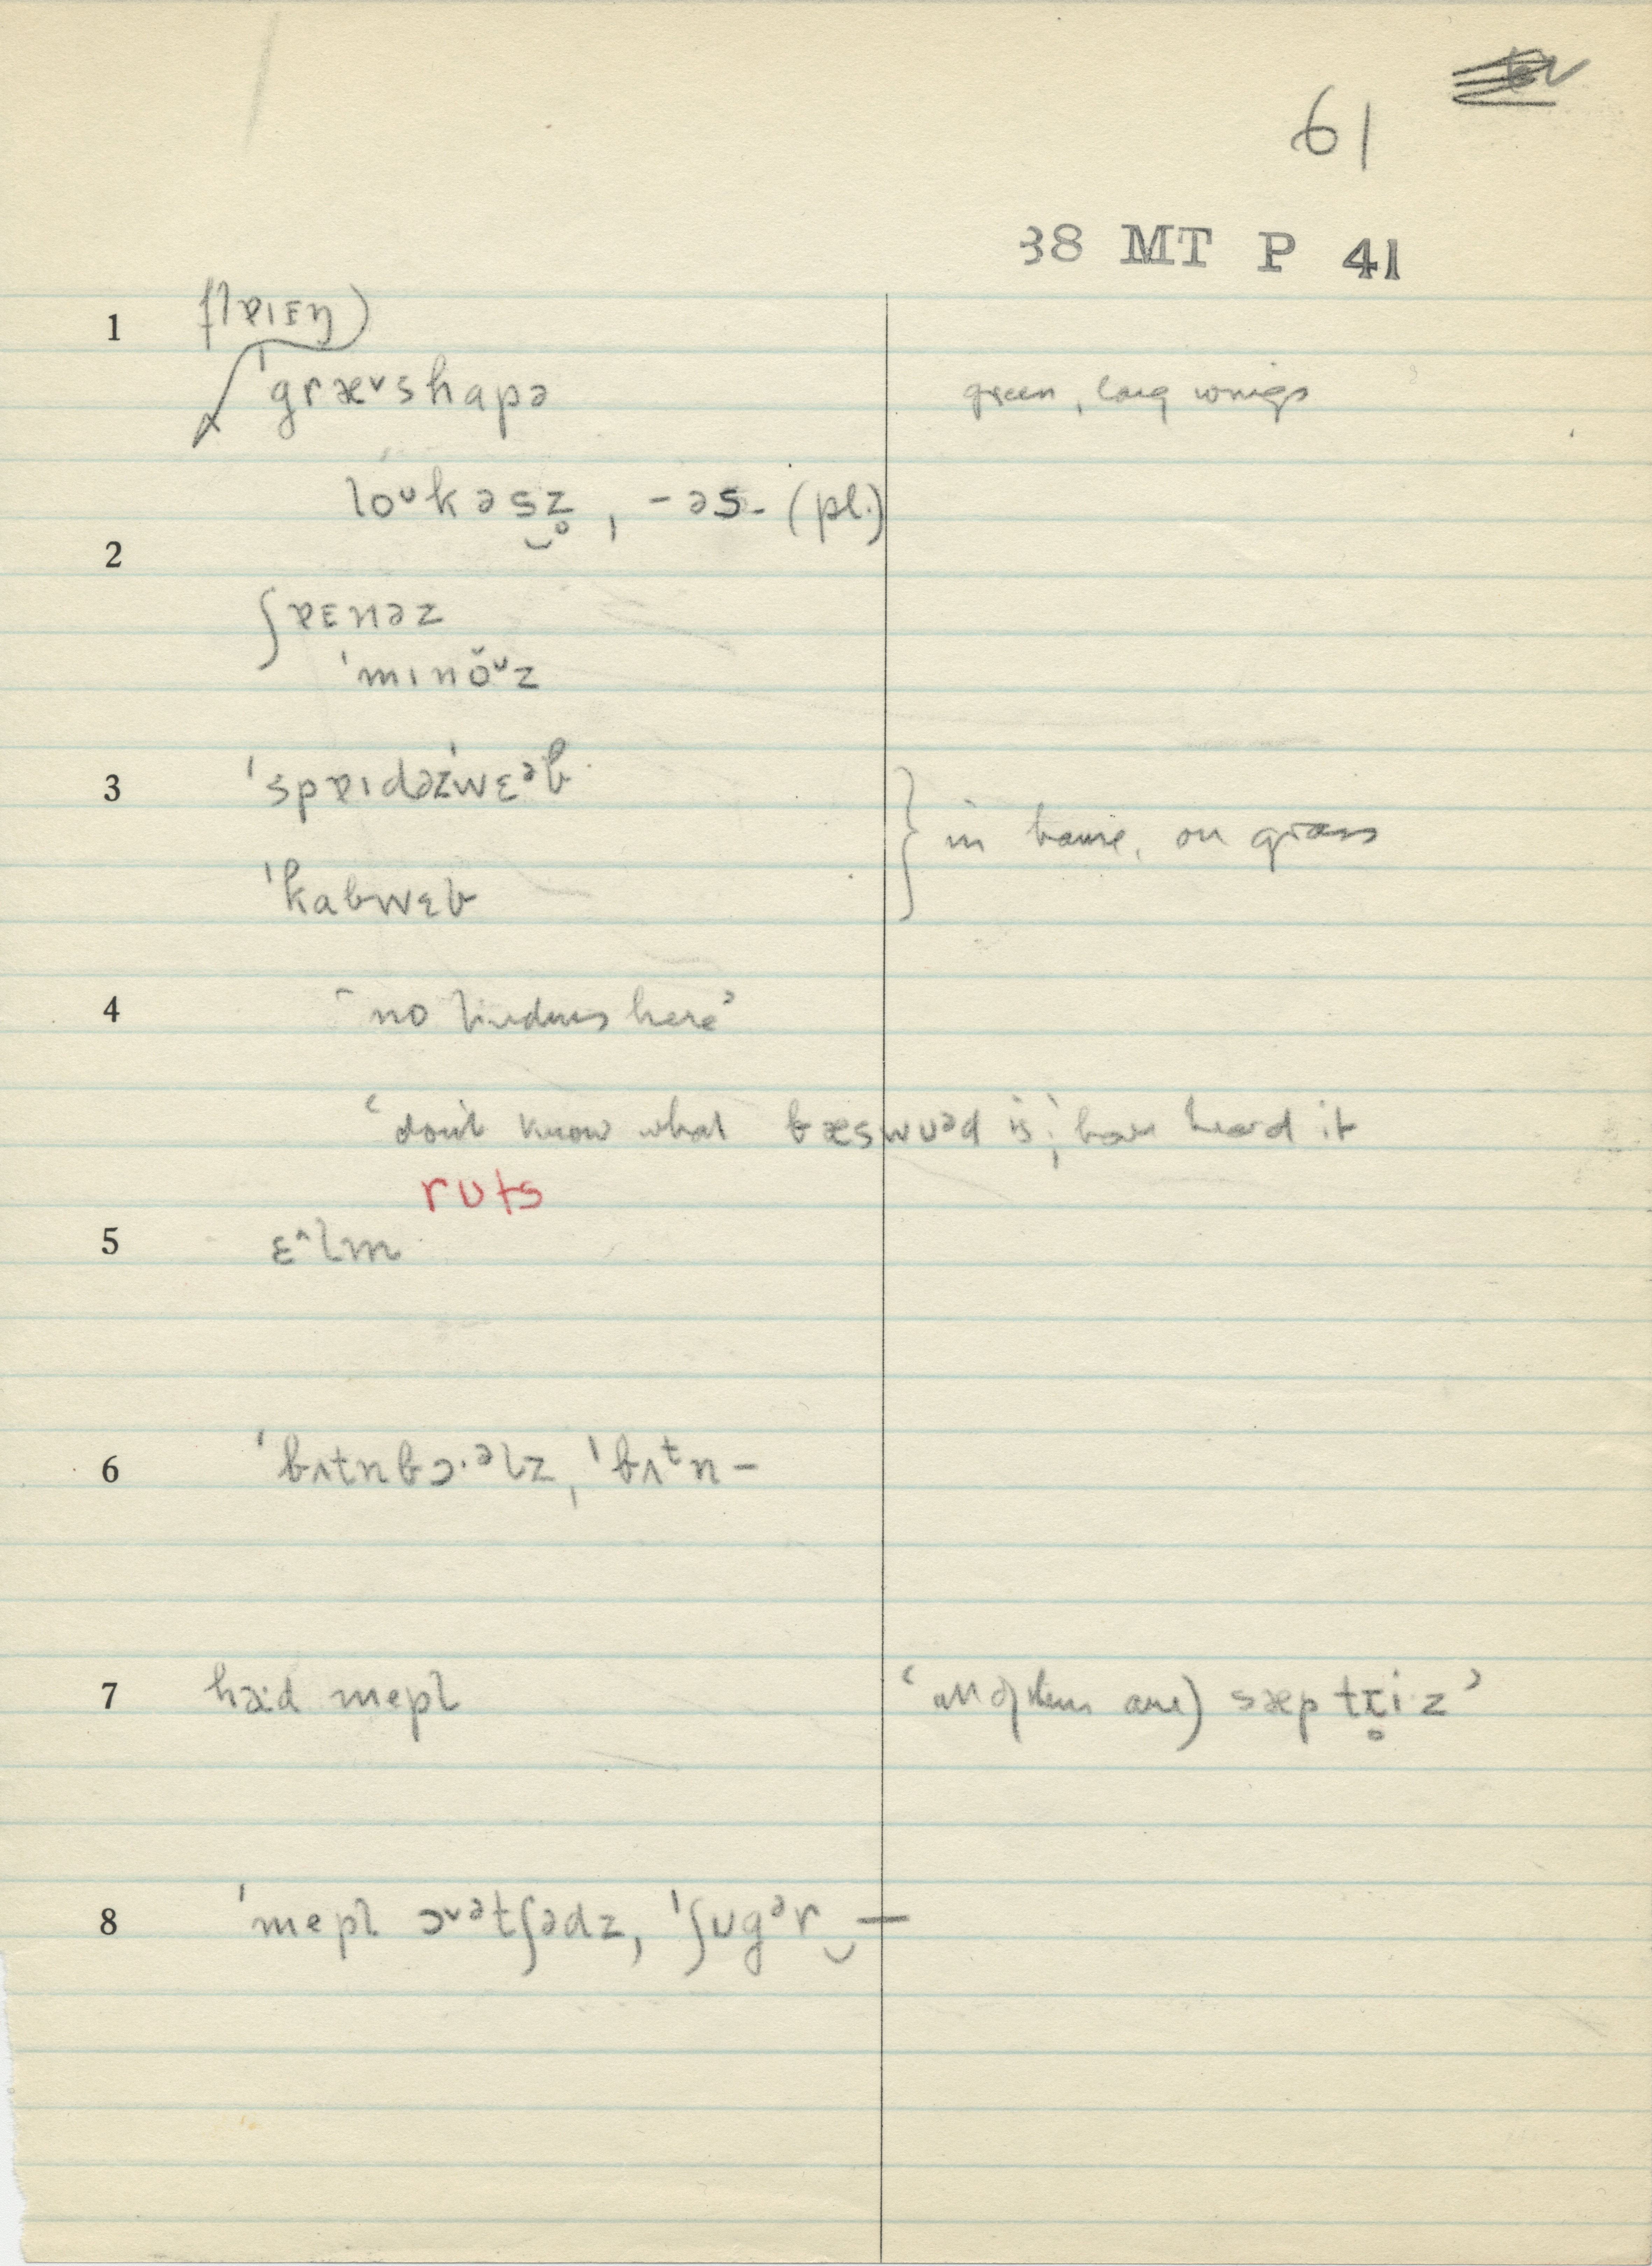 61
38 MT P 41
1 flɐɪɛŋ)
ˈgræᵛshɑpə green, long wings
loᴜkəsz̥, -əs- (pl.)
2
ʃɐɛnəz
ˈmɪnŏᵛz
3 ˈspɐɪdəzˈwɛᵊb
in house, on grass
ˈkɑbwɛb
4 ‘no lindens here’
‘don't know what bæswᴜəd is; have heard it
ruts
5 ɛ^lm
6 ˈbʌtnbɔ·ᵊlz, ˈbʌᵗn –
7 ha:d mepl ‘all (of them are) sæp tɹ̥iz’
8 ˈmepl ɔᵛᵊtʃədz, ˈʃᴜgᵊr‿—